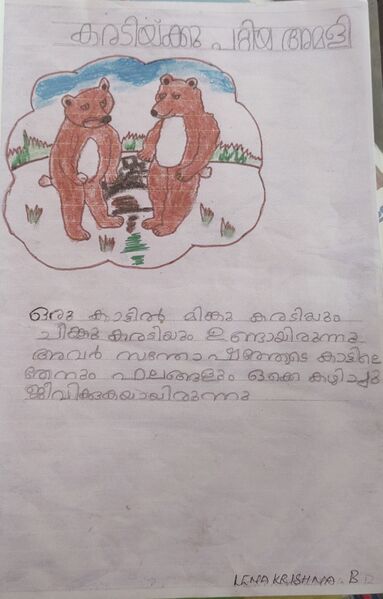 കരടിയ്ക്കു പറ്റിയ അമളി
ഒരു കാട്ടിൽ മിക്കു കരടിയും
ചിക്കു കരടിയും ഉണ്ടായിരുന്നു
അവർ സന്തോഷത്തോടെ കാട്ടിലെ
തേനും ഫലങ്ങളും ഒക്കെ കഴിച്ചു
ജീവിക്കുകയായിരുന്നു
LENA KRISHNA. B